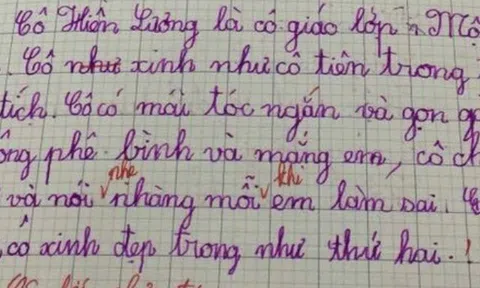 Cô Hiền Lương là cô giáo lớp Mộ
. Cô như xinh như cô tiên trong
tích. Cô có mái tóc ngắn và gọn g
ông phê bình và mắng em, cô ch
nhẹ khi
và nói nhàng mỗi em làm sai. C
cô xinh đẹp trong như thứ hai. !